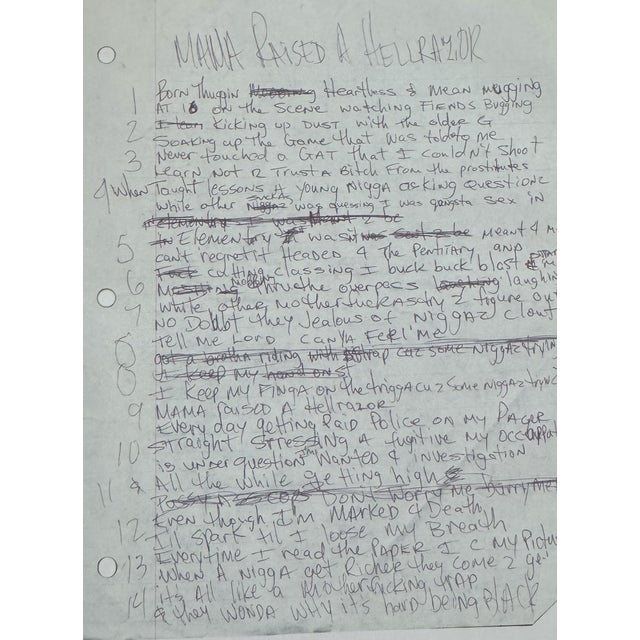 MAMA RAISED A HELLRAZOR
1 Born Thuggin Heartless & mean mugging
AT 16 on the scene watching FIENDS Bugging
2 I learn Kicking up DUST with the older G
Soaking up the Game that was told to me
3 Never touched a GAT that I couldn't Shoot
Learn Not 2 Trust a Bitch From the prostitutes
4 When Taught lessons A young Nigga asking Questionz
While other Suckaz Niggaz was guessing I was gangsta sex in
elementary I was meant 2 be
5 In Elementry I was meant 4 m
can't regret it HEADED 4 The Pentitary AND
6 cutting classing I buck buck blast
thru the overpass laughin
7 While other motherfuckas try 2 figure out
NO Doubt they Jealous of NiggAZ clout
Tell me LORD CANYA FEEL me
8 got a brotha riding with strap cuz some NIGGAZ trying
8 I keep my hand on
I keep my FINGA on the trigga cuz some Niggaz tryn
9 MAMA raised A Hellrazor
Every day getting PAID Police on my PAGER
10 Straight stressing A fugitive my occupat
is under question Wanted 4 investigation
11 & All the while getting high
Don't worry me hurry me
12 Even though I'm MARKED 4 Death
I'll spark til I loose my Breath
13 Everytime I read the PAPER I C my Pictur
When A nigga get Richer they come 2 get
14 it's All like a motherfucking trap
& they WONDA WHY it's hard being BlACK